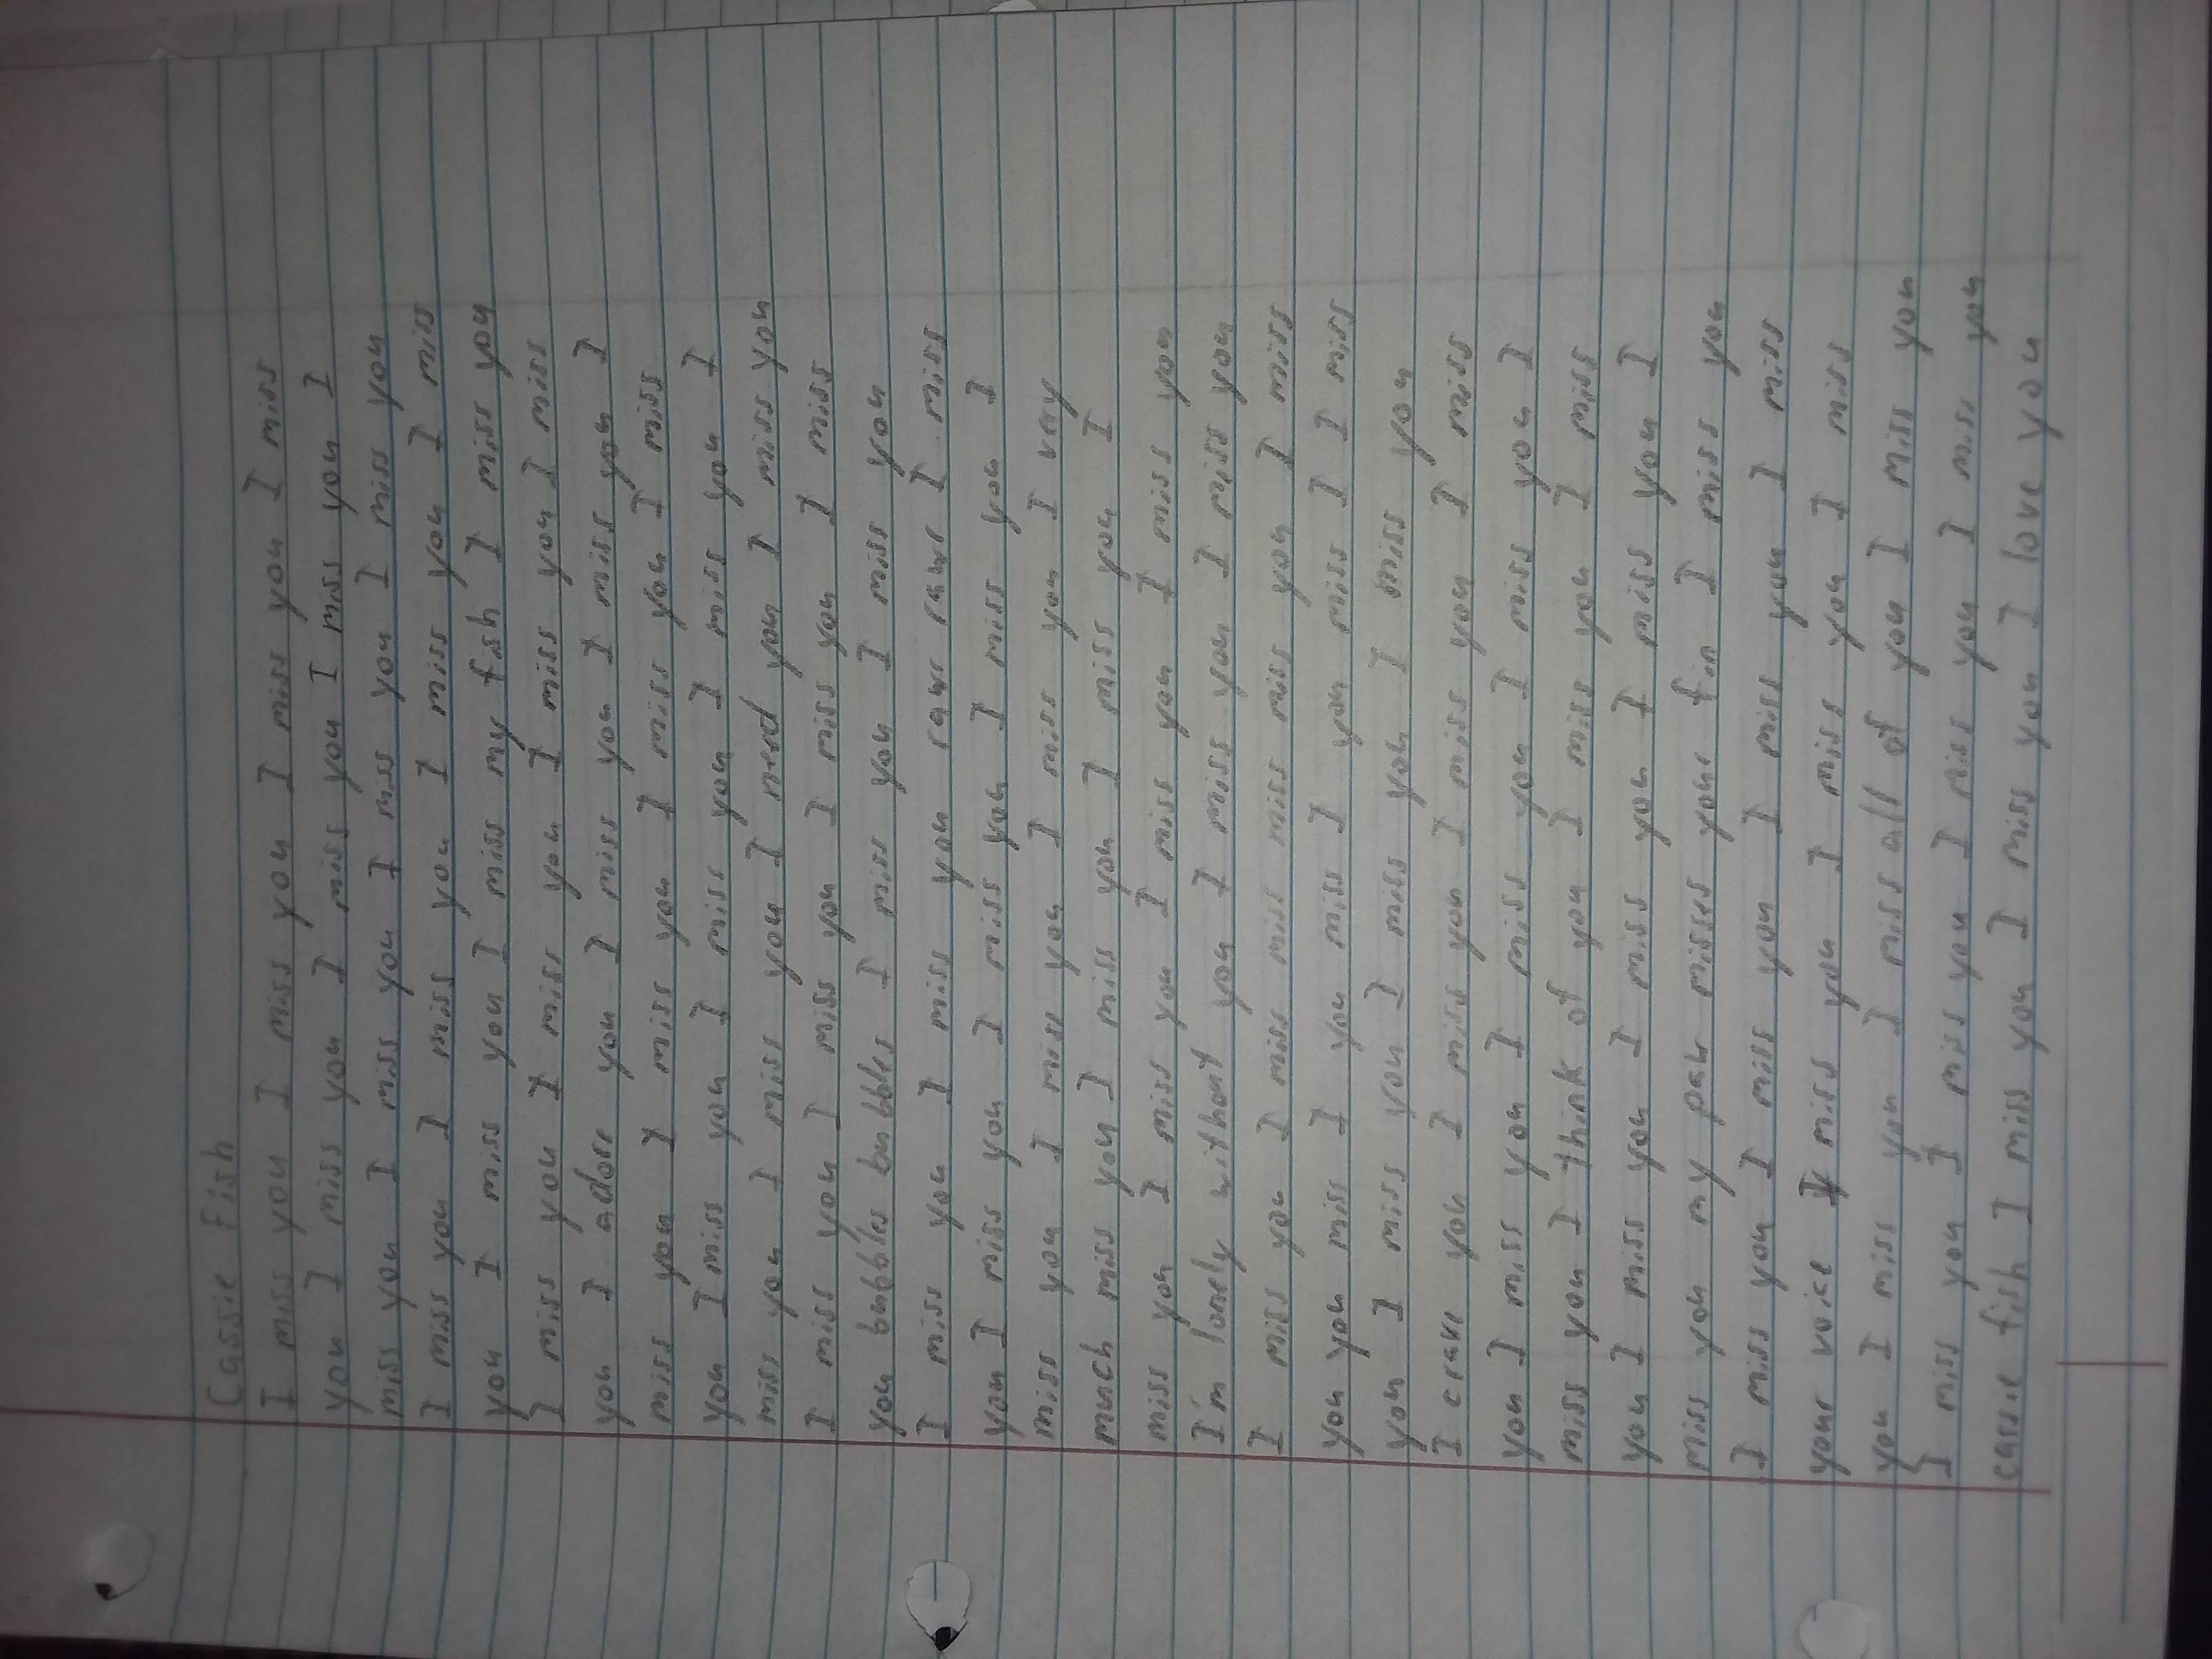 Cassie Fish
I miss you I miss you I miss you I miss
you I miss you I miss you I miss you I
miss you I miss you I miss you I miss you
I miss you I miss you I miss you I miss
you I miss you I miss my fish I miss you
I miss you I miss you I miss you I miss
you I adore you I miss you I miss you I
miss you I miss you I miss you I miss
you I miss you I miss you I miss you I
miss you I miss you I need you I miss you
I miss you I miss you I miss you I miss
you bubbles bubbles I miss you I miss you
I miss you I miss you rawr rawr I miss
you I miss you I miss you I miss you I
miss you I miss you I miss you I very
much miss you I miss you I miss you I
miss you I miss you I miss you I miss you
I'm lonely without you I miss you I miss you
I miss you I miss miss miss you I miss
you you miss I you miss I you miss I I miss
you I miss you I miss you I miss you
I crave you I miss you I miss you I miss
you I miss you I miss you I miss you I
miss you I think of you I miss you I miss
you I miss you I miss you I miss you I
miss you my paw misses your fin I miss you
I miss you I miss you I miss you I miss
your voice I miss you I miss you I miss
you I miss you I miss all of you I miss you
I miss you I miss you I miss you I miss you
cassie fish I miss you I miss you I love you